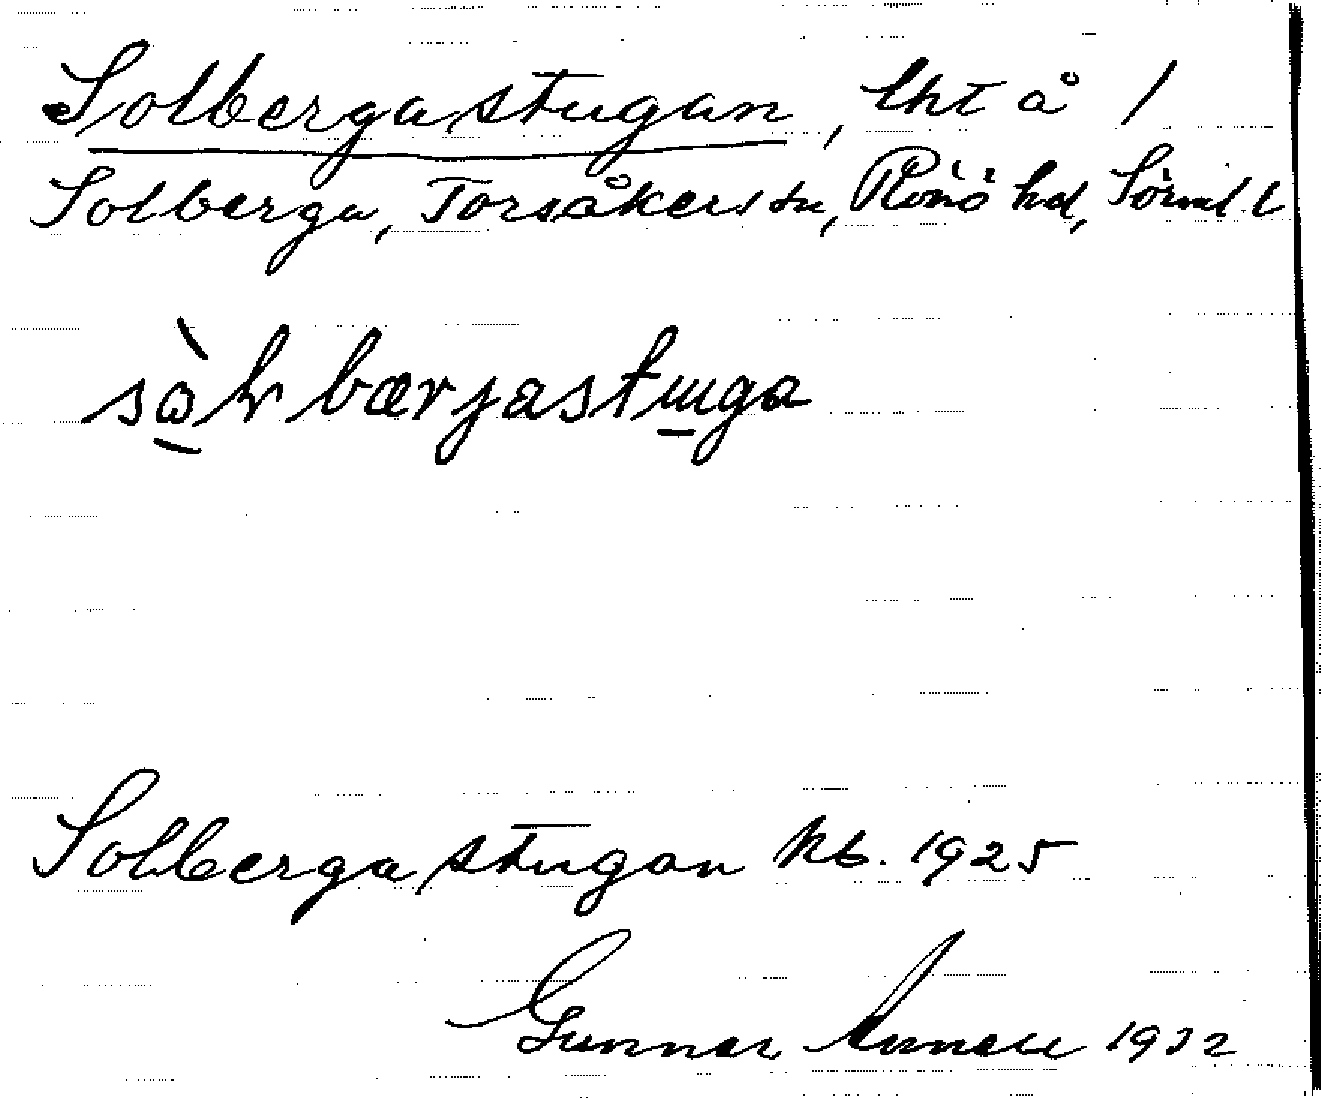 Solbergastugan, lht å /
Solberga, Torsåkers sn, Rönö hd, Sörml. l
sòlbærjastuga
Solbergastugan kb. 1925
Gunnar 1932